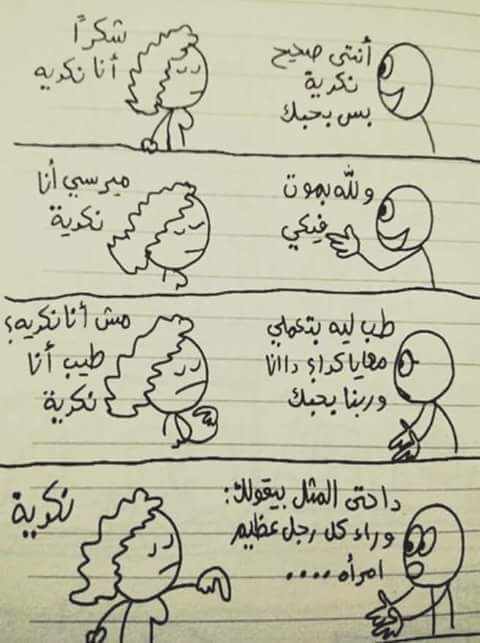 أنتى صحيح
نكدية
بس بحبك
شكرًا
أنا نكديه
ولله بموت
فيكي
ميرسي أنا
نكدية
طب ليه بتعملي
معايا كدا؟ داانا
وربنا بحبك
مش أنا نكديه؟
طيب أنا
نكدية
داحتى المثل بيقولك:
وراء كل رجل عظيم
امرأه ....
نكدية